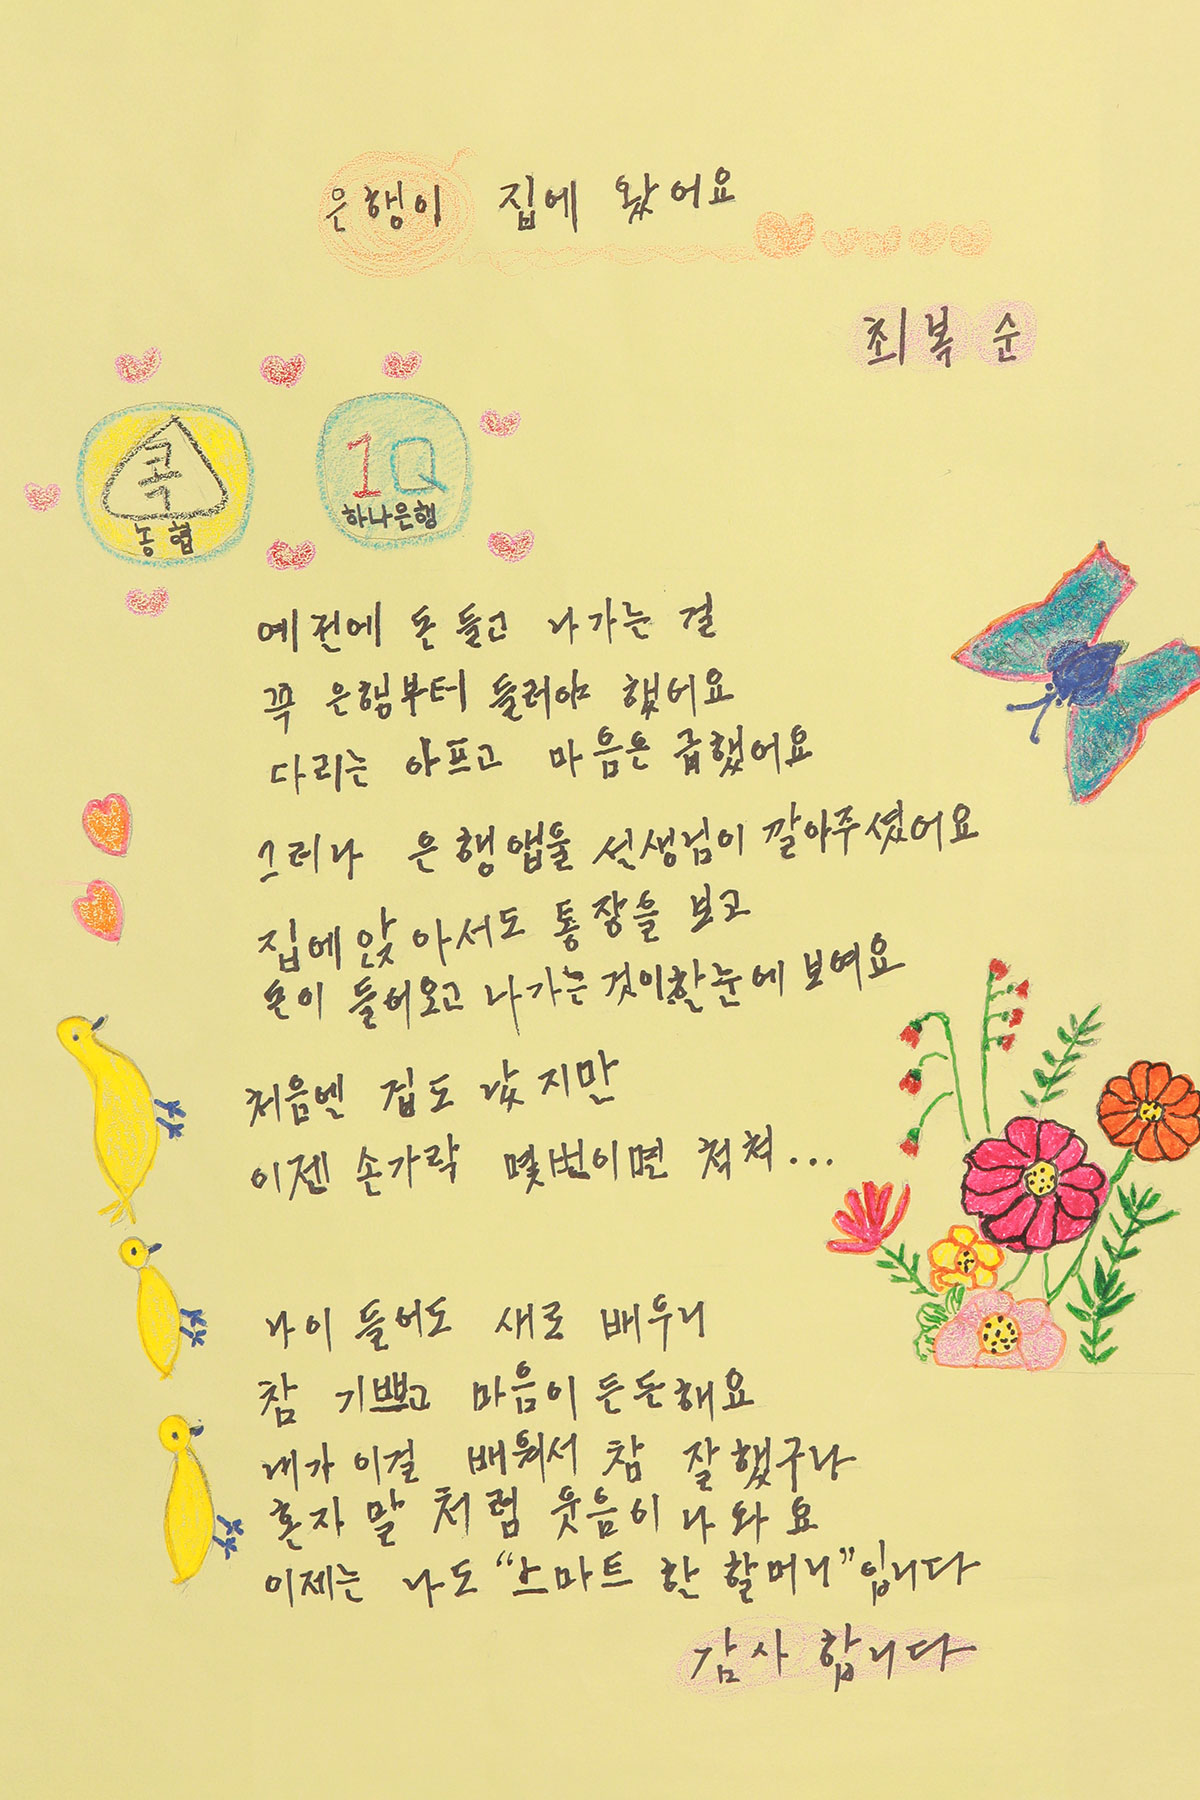 은행이 집에 왔어요
최복순
콕
농협
1Q
하나은행
예전에 돈 들고 나가는 걸
꼭 은행부터 들려야 했어요
다리는 아프고 마음은 급했어요
그러나 은행앱을 선생님이 깔아주셨어요
집에 앉아서도 통장을 보고
돈이 들어오고 나가는 것이 한눈에 보여요
처음엔 겁도 났지만
이젠 손가락 몇번이면 척척...
나이 들어도 새로 배우니
참 기쁘고 마음이 든든해요
내가 이걸 배워서 참 잘했구나
혼자 말 처럼 웃음이 나와요
이제는 나도 “스마트 한 할머니”입니다
감사 합니다